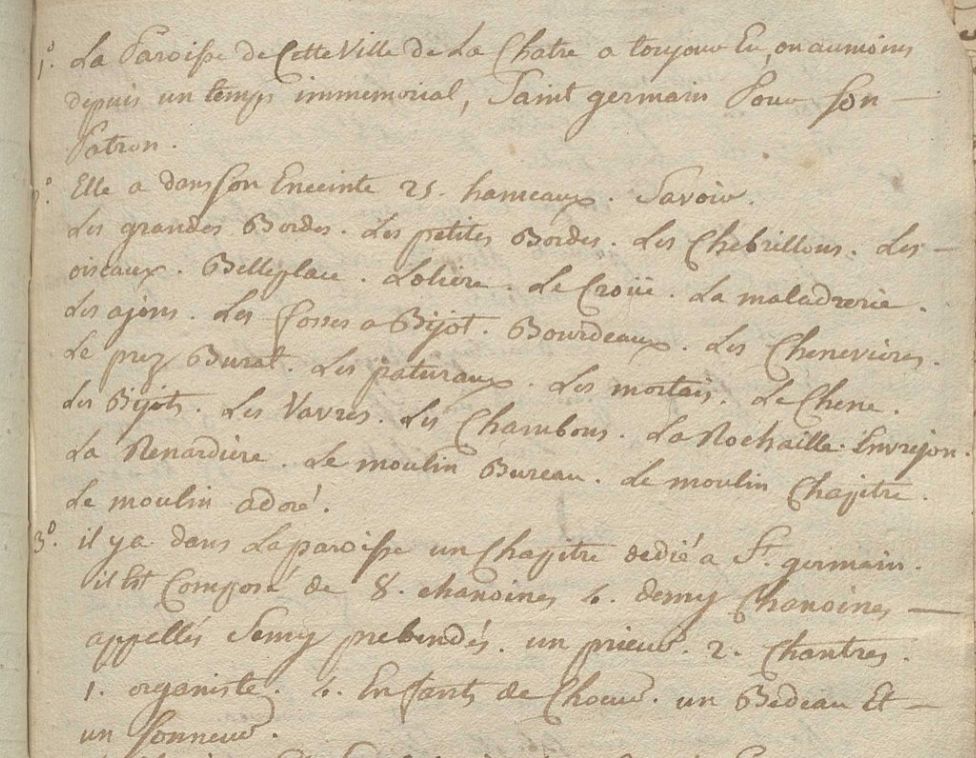 1.° La Paroisse de Cette Ville de La Chatre a toujour Eu, ou aumoins
depuis un temps immemorial, Saint germain Pour Son
Patron.
2.° Elle a dans Son Enceinte 25. hameaux. Savoir.
Les grandes Bordes. Les petites Bordes. Les Chebrillons. Les
oiseaux. Belleplace. Loliere. Le Croüé. La maladrerie.
Les ajons. Les fosses a Bijot. Bourdeaux. Les Chenevieres.
Le prez Burat. Les paturaux. Les mortais. Le Chene.
Les Bijots. Les Vavres. Les Chambons. La Rochaille. Envrejon.
La Renardiere. Le moulin Bureau. Le moulin Chapitre.
Le moulin adoré.
3.° il y a dans La paroisse un Chapitre dedié a St. germain.
il Est Composé de 8. chanoines 4. demy Chanoines
appellés Semy prebendés. un prieur. 2. Chantres.
1. organiste. 4. Enfants de Choeur. un Bedeau Et
un Sonneur.